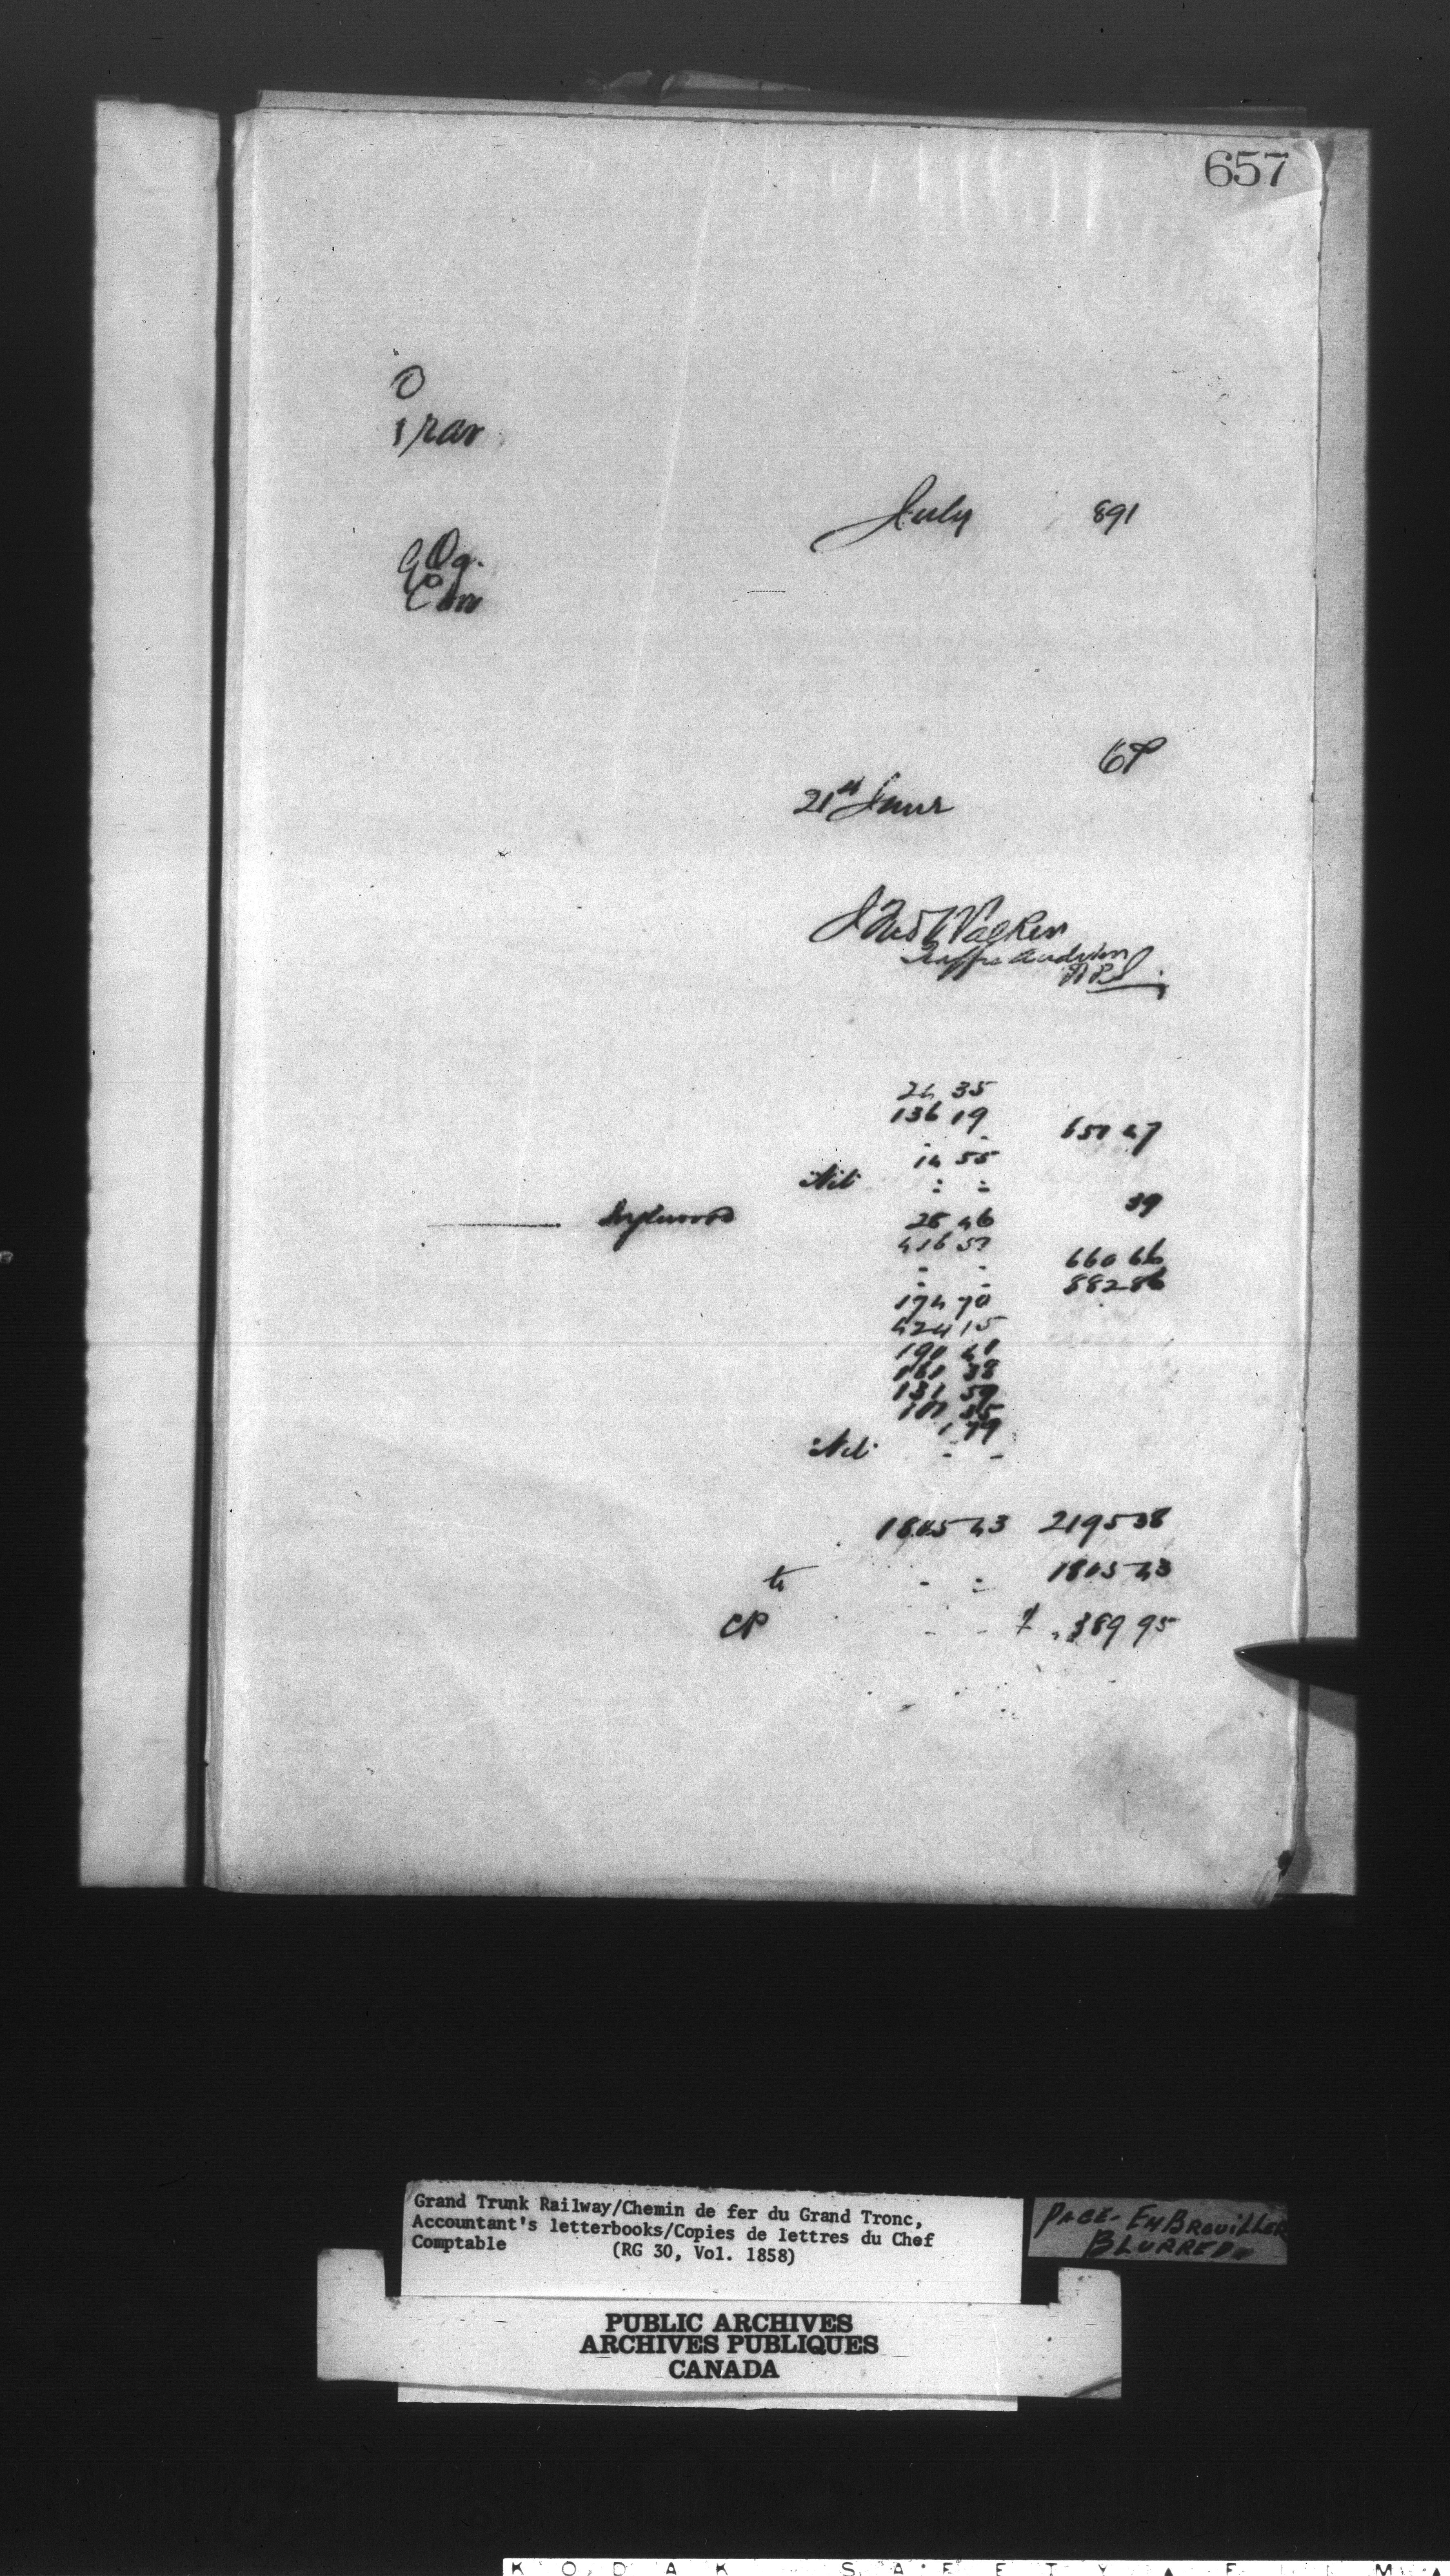 657
O
July 891
21st June
Jno Walker
Traffic Auditor
24 35
136 19
14 55
Nil - -
39
Inglewood
28 46
416 51
660 66
- - 882 86
174 70
424 15
190 41
161 38
131 59
101 85
1 79
Nil - -
1805 43 2195 38
to - - 1805 43
CP - - $ 389 95
Grand Trunk Railway/Chemin de fer du Grand Tronc,
Accountant's letterbooks/Copies de lettres du Chef
Comptable (RG 30, Vol. 1858)
PAGE- EMBROUILLER
BLURRED
PUBLIC ARCHIVES
ARCHIVES PUBLIQUES
CANADA
KODAK SAFETY